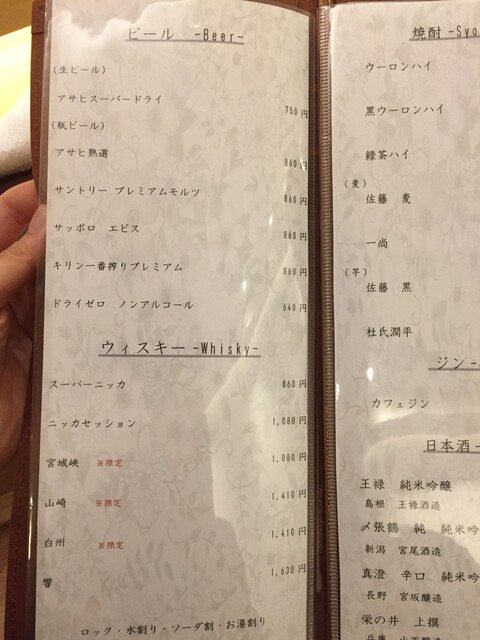 ビール -Beer-
(生ビール)
アサヒスーパードライ 750円
(瓶ビール)
アサヒ熟選 860円
サントリー プレミアムモルツ 860円
サッポロ エビス 860円
キリン一番搾りプレミアム 860円
ドライゼロ ノンアルコール 640円
ウィスキー -Whisky-
スーパーニッカ 860円
ニッカセッション 1,080円
宮城峡 ※限定 1,080円
山崎 ※限定 1,410円
白州 ※限定 1,410円
響 1,630円
ロック・水割り・ソーダ割・お湯割り
焼酎 -Syo
ウーロンハイ
黒ウーロンハイ
緑茶ハイ
(麦)
佐藤 麦
一尚
(芋)
佐藤 黒
杜氏潤平
ジン -
カフェジン
日本酒 -
王禄 純米吟醸
島根 王祿酒造
〆張鶴 純 純米吟
新潟 宮尾酒造
真澄 辛口 純米吟
長野 宮坂醸造
栄の井 上撰
兵庫 山西酒造